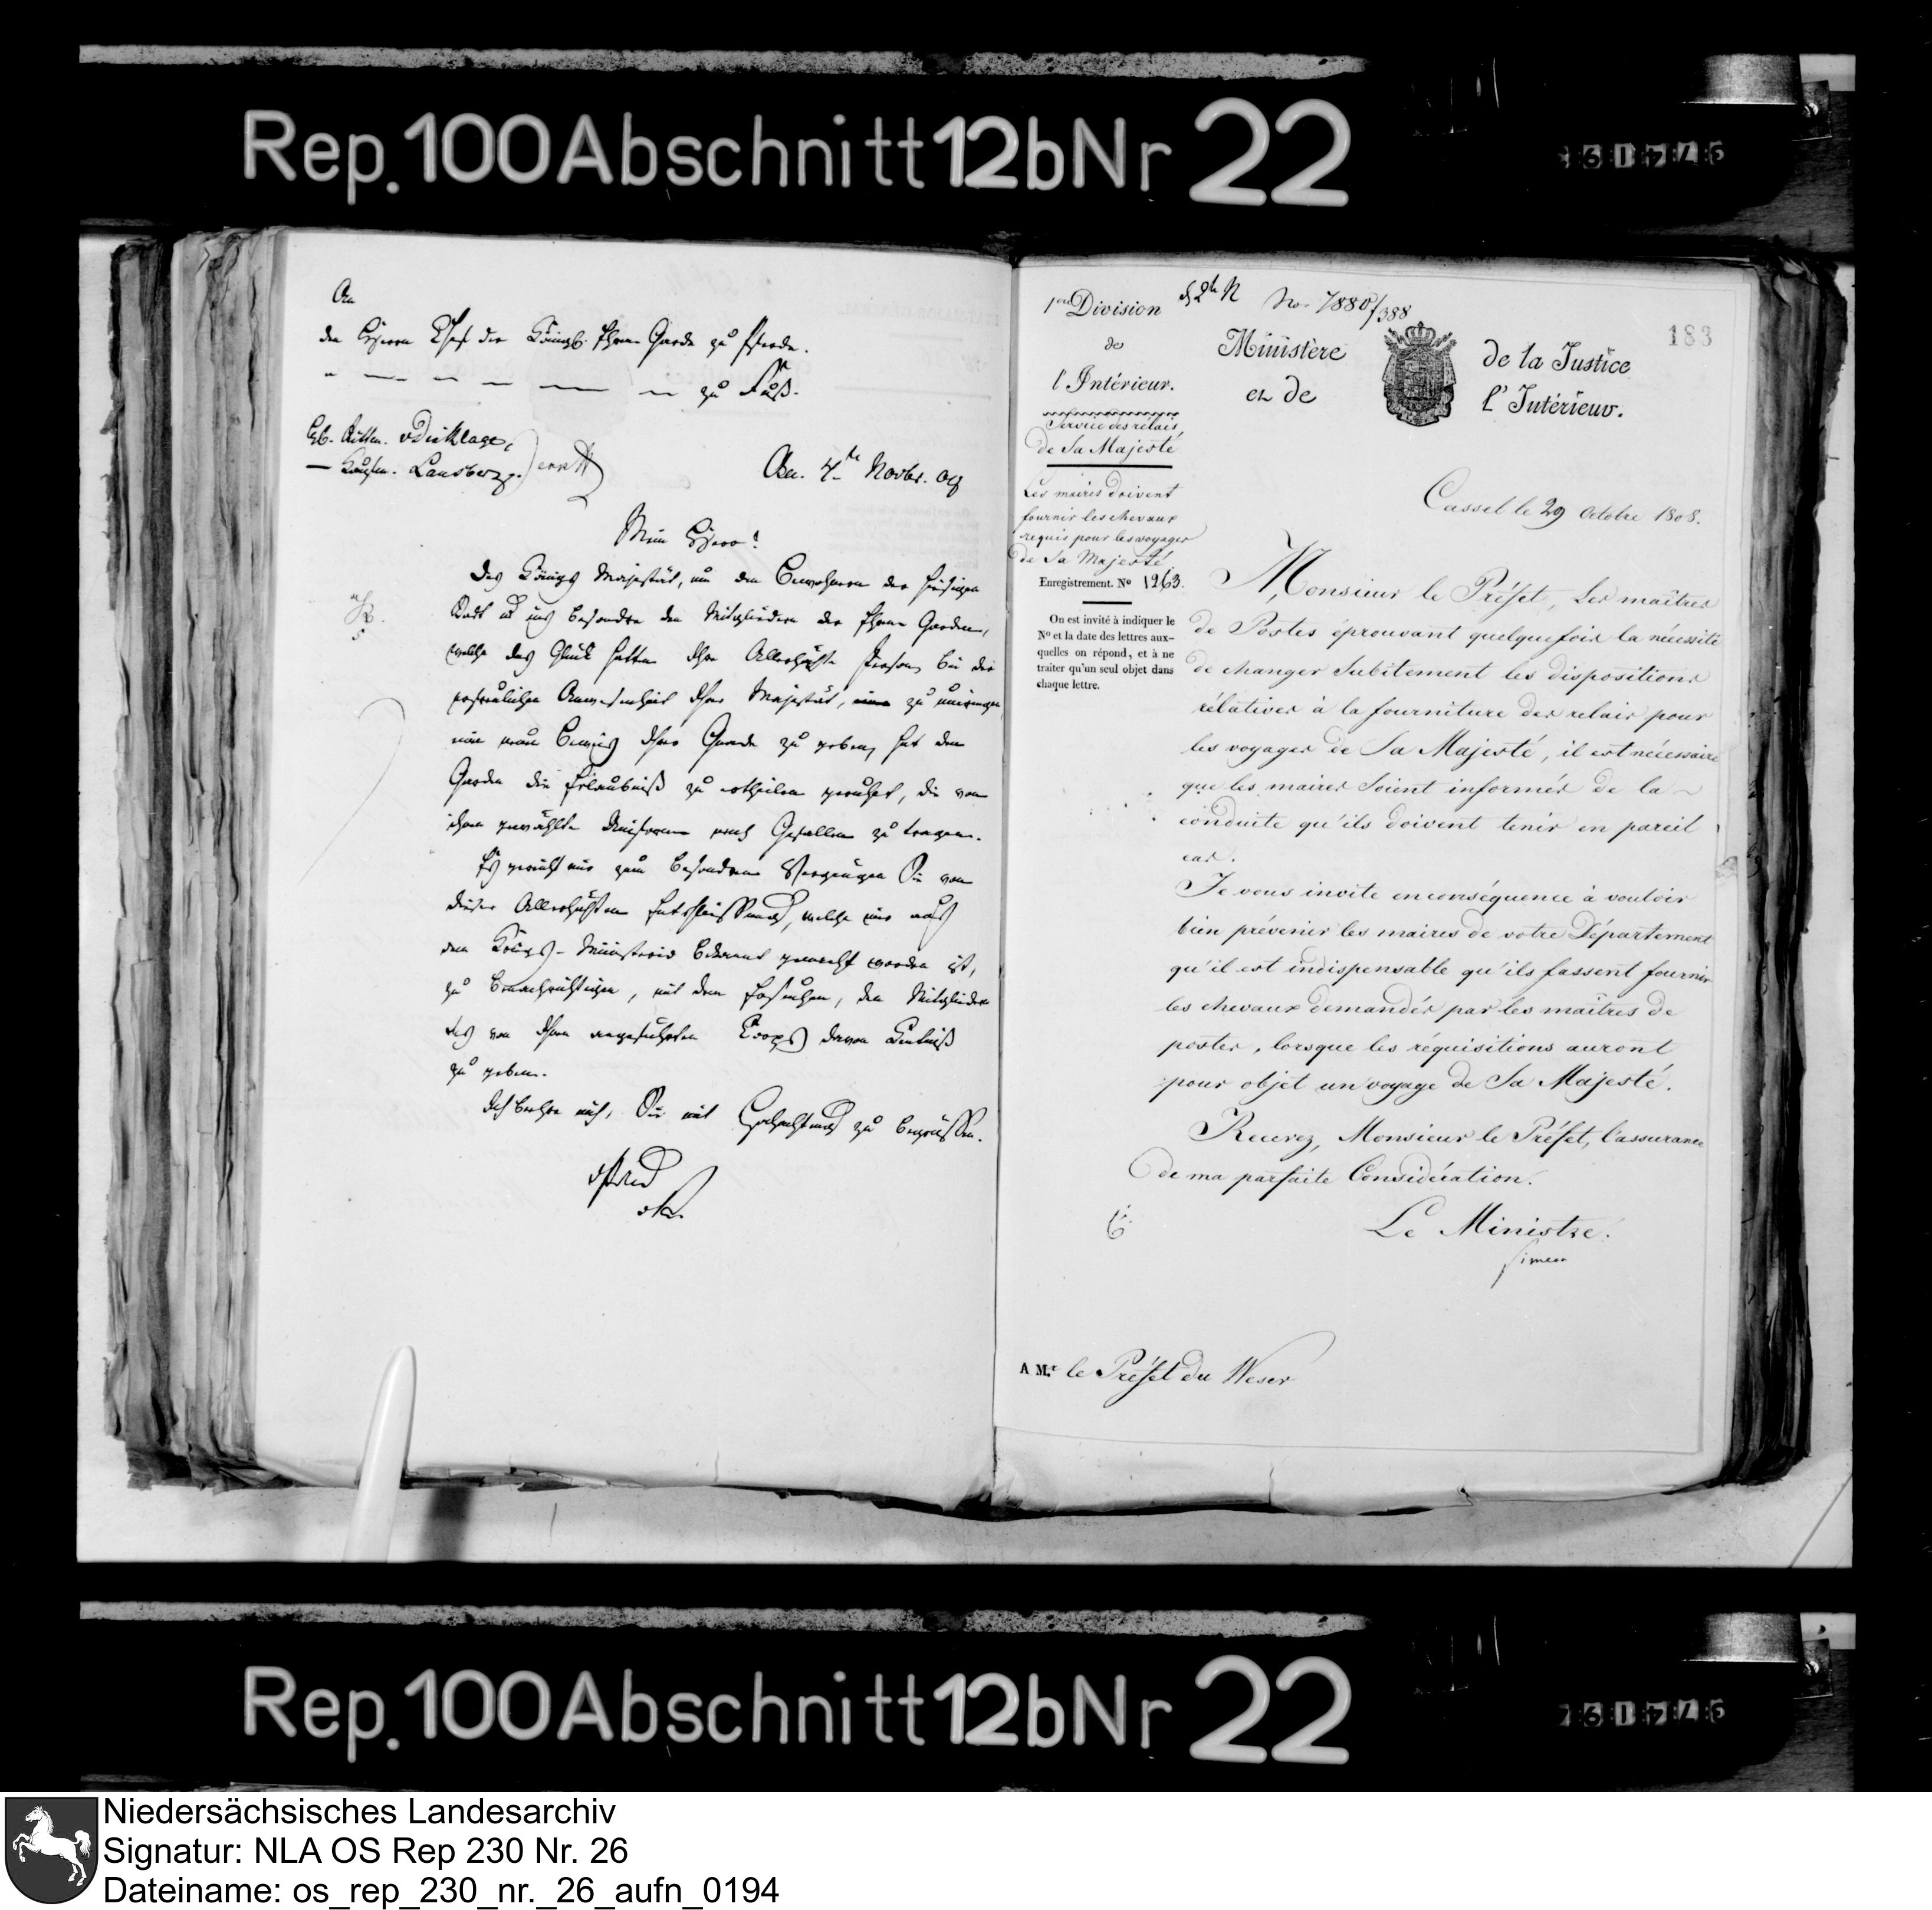 Rep. 100 Abschnitt 12b Nr 22
An
den Herrn Chef der Königl. Ehren Garde zu Pferde.
zu Fuß.
H. Rittm. v Dinklage
— Hauptm. Lansberg
Osn. 4te Novbr. 08
Mein Herr!
Des Königs Majestät, um den Bewohnern der hiesigen
Stadt u ins besondre den Mitgliedern der Ehren Garden,
welche das Glück hatten Ihre Allerhöchste Person, bei der
Anwesenheit Ihrer Majestät, zu umringen
einen neuen Beweis Ihrer Gnade zu geben, hat den
Garden die Erlaubniß zu ertheilen geruhet, die von
ihnen gewählte Uniform nach Gefallen zu tragen.
Es gereicht mir zum besondern Vergnügen Sie von
dieser Allerhöchsten Entschließung, welche mir aus
dem Königs-Ministerio bekannt gemacht worden ist,
zu benachrichtigen, mit dem Ersuchen, den Mitgliedern
des von Ihnen angeführten Corps davon Kentniß
zu geben.
Ich beehre mich, Sie mit Hochachtung zu begrüßen.
1ere Division
de
l'Intérieur.
Service des relais,
de Sa Majesté
Les maires doivent
fournir les chevaux
requis pour les voyages
de Sa Majesté
Enregistrement. No 1263.
On est invité à indiquer le
No et la date des lettres aux-
quelles on répond, et à ne
traiter qu'un seul objet dans
chaque lettre.
No. 7880/388
183
Ministère de la Justice
et de l'Intérieur.
Cassel le 29 Octobre 1808.
Monsieur le Préfet, Les maîtres
de Postes éprouvant quelquefois la nécessité
de changer Subitement les dispositions
rélatives à la fourniture des relais pour
les voyages de Sa Majesté, il est nécessaire
que les maires Soient informés de la
conduite qu'ils doivent tenir en pareil
cas.
Je vous invite en conséquence à vouloir
bien prévenir les maires de votre Département
qu'il est indispensable qu'ils fassent fournir
les chevaux demandés par les maîtres de
postes, lorsque les réquisitions auront
pour objet un voyage de Sa Majesté.
Recevez, Monsieur le Préfet, l'assurance
de ma parfaite Considération.
Le Ministre.
Simeon
A M.r le Préfet du Weser
Rep. 100 Abschnitt 12b Nr 22
Niedersächsisches Landesarchiv
Signatur: NLA OS Rep 230 Nr. 26
Dateiname: os_rep_230_nr._26_aufn_0194